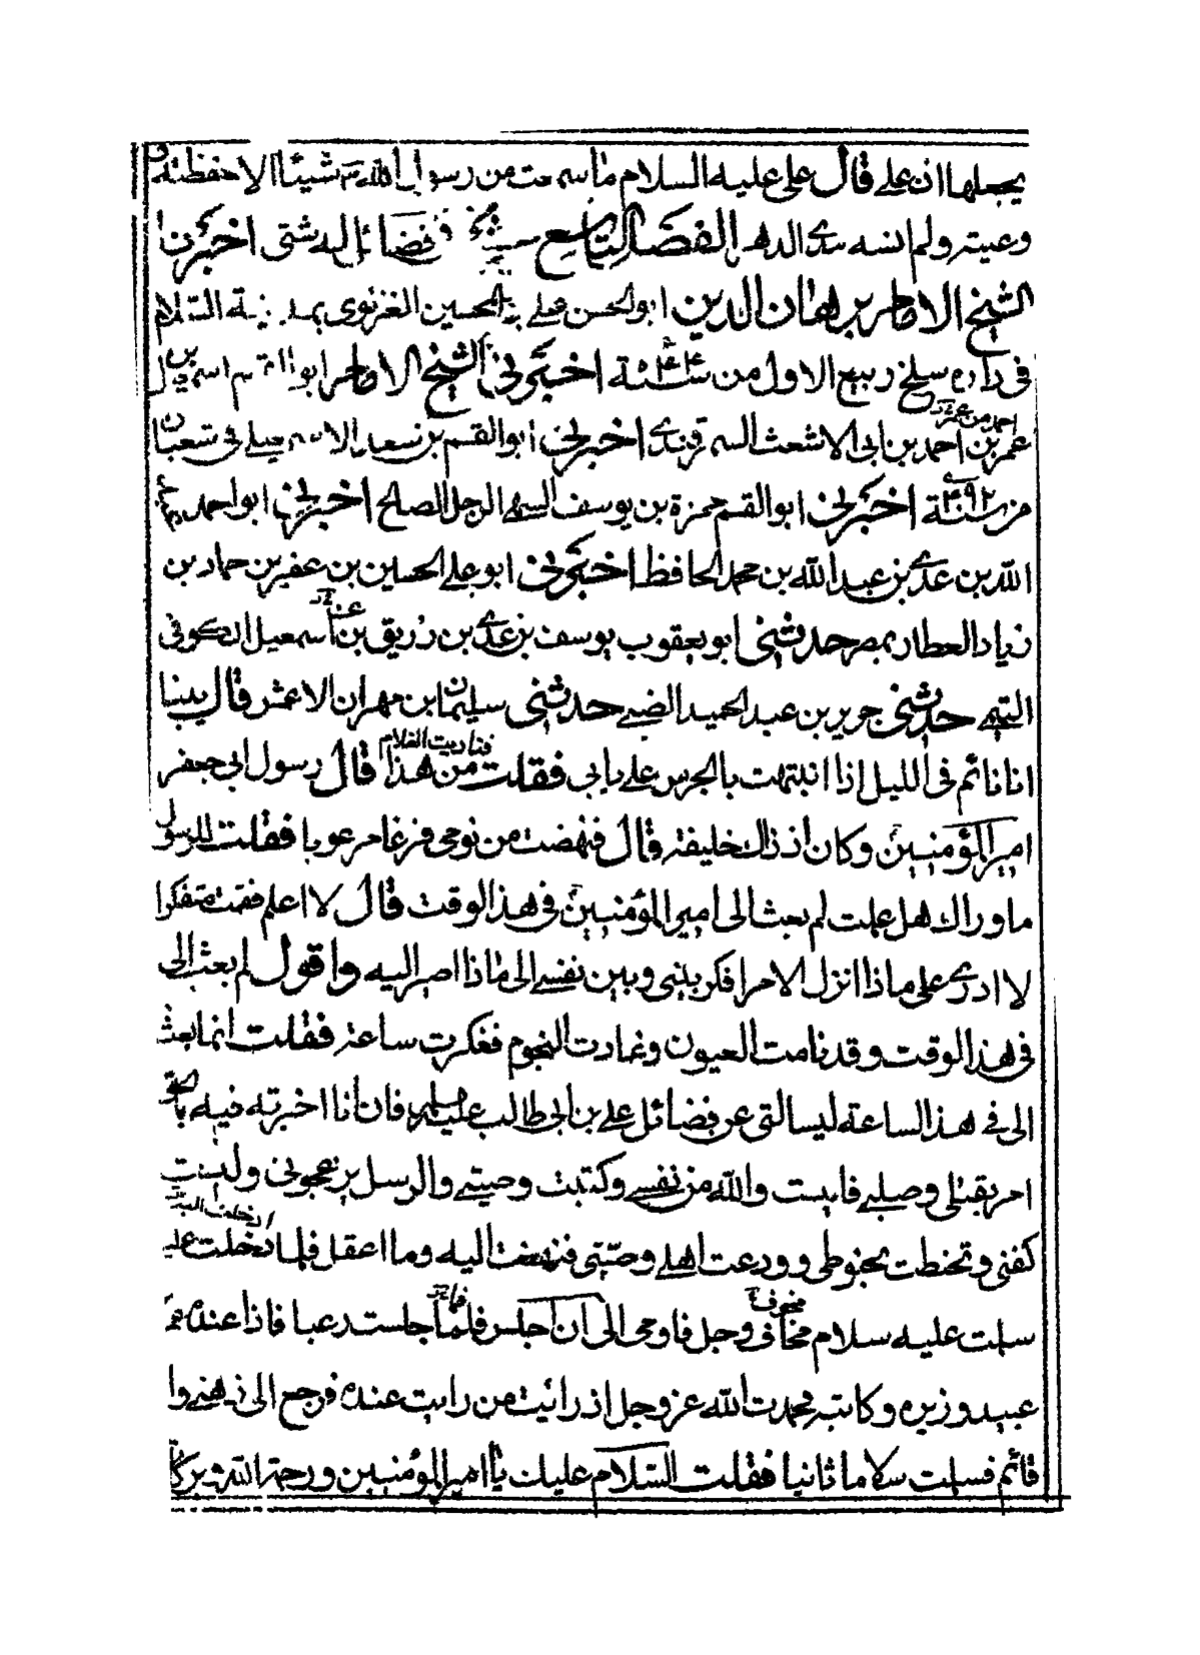 يجعلها اذن علي قال علي عليه السلام ما سمعت من رسول الله شيئا الا حفظته و
وعيته ولم انسه مدى الدهر الفصل التاسع في فضائل له شتى اخبرنا
الشيخ الامام برهان الدين ابو الحسن علي بن الحسين الغزنوي بمدينة السلام
في داره سلخ ربيع الاول من سنة ٥٤٤ اخبرني الشيخ الامام ابو القاسم اسمعيل بن
احمد بن عمر
عمر بن احمد بن ابي الاشعث السمرقندي اخبرني ابو القسم بن سعد الاسمعيلي في شعبان
من سنة ٤٩٢ اخبرني ابو القسم حمزة بن يوسف السهمي الرجل الصالح اخبرني ابو احمد
الله بن عدي بن عبد الله بن محمد الحافظ اخبرني ابو علي الحسين بن عفير بن حماد بن
زياد العطار بمصر حدثني ابو يعقوب يوسف بن عدي بن زريق بن اسمعيل الكوفي
التيمي حدثني جرير بن عبد الحميد الضبي حدثني سليمان بن مهران الاعمش قال بينا
فناديت الغلام
انا نائم في الليل اذا انتبهت بالجرس على بابي فقلت من هذا قال رسول ابي جعفر
امير المؤمنين وكان اذ ذاك خليفة قال فنهضت من نومي فزعا مرعوبا فقلت للرسول
ما وراك هل علمت لم بعث الى امير المؤمنين في هذا الوقت قال لا اعلم فقمت متفكرا
لا ادري على ماذا انزل الامر افكر بيني وبين نفسي الى ماذا اصير اليه واقول لم بعث الى
في هذا الوقت وقد نامت العيون وغارت النجوم ففكرت ساعة فقلت انما بعث
الى في هذا الساعة ليسالني عن فضائل علي بن ابي طالب عليه السلام فان انا اخبرته فيه بالحق
امر بقتلي وصلبي فايست والله من نفسي وكتبت وصيتي والرسل يزعجوني ولبست
كفني وتحنطت بحنوطي وودعت اهلي وصبيتي فنهضت اليه وما اعقل فلما دخلت عليه
سلمت عليه سلام مخاف وجل فاومى الى ان اجلس فلما جلست رعبا فاذا عنده عمرو بن
عبيد وزيره وكاتبه فحمدت الله عز وجل اذ رائيت من رايت عنده فرجع الى ذهني وانا
قائم فسلمت سلاما ثانيا فقلت السلام عليك يا امير المؤمنين ورحمة الله وبركاته